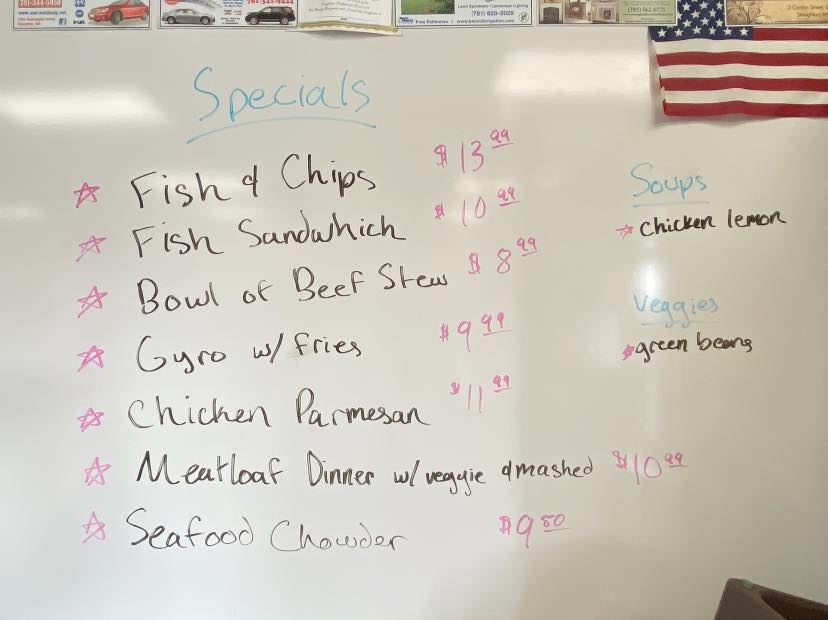 (781) 828-2029
Specials
☆ Fish & Chips $13.99
☆ Fish Sandwhich $10.99
☆ Bowl of Beef Stew $8.99
☆ Gyro w/ fries $9.99
☆ Chicken Parmesan $11.99
☆ Meatloaf Dinner w/ veggie & mashed $10.99
☆ Seafood Chowder $9.50
Soups
☆ chicken lemon
Veggies
☆ green beans